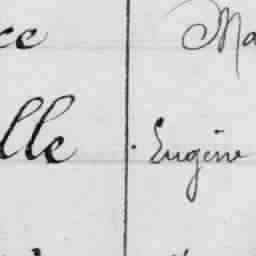 ce Ma
lle Eugène